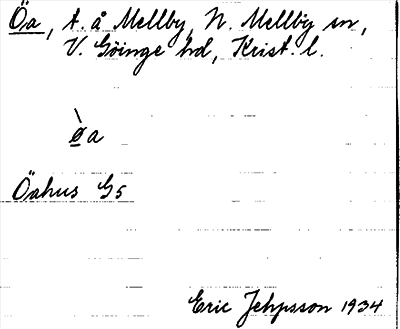 Öa, t. å Mellby, N. Mellby sn,
V. Göinge hd, Krist. l.
ø̀a
Öahus G5
Eric Jehpsson 1934